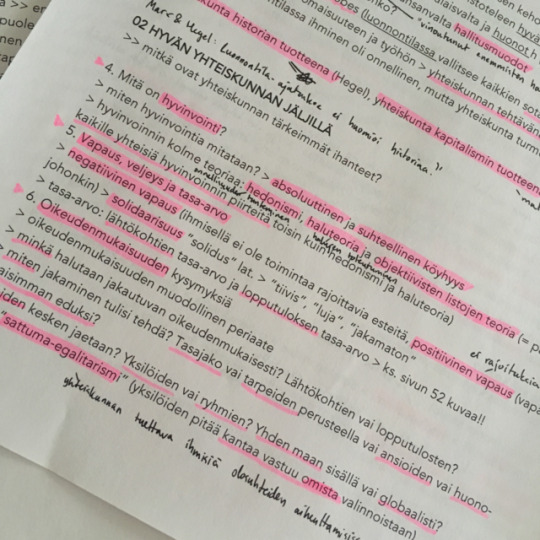 >> en
puole
omaisuuteen ja työhön > yhteiskunnan tehtävän
(luonnontilassa vallitsee kaikkien sot
hallitusmuodot
huonot h
kunta historian tuotteena (Hegel), yhteiskunta kapitalismin tuotteena
ntilassa ihminen oli onnellinen, mutta yhteiskunta turm
Marx & Hegel: luonnontila-ajatukset ei huomioi historiaa.
02 HYVÄN YHTEISKUNNAN JÄLJILLÄ
>> mitkä ovat yhteiskunnan tärkeimmät ihanteet?
4. Mitä on hyvinvointi?
> miten hyvinvointia mitataan? > absoluuttinen ja suhteellinen köyhyys
> hyvinvoinnin kolme teoriaa: hedonismi, haluteoria ja objektiivisten listojen teoria (= p
kaikille yhteisiä hyvinvoinnin piirteitä toisin kuin hedonismi ja haluteoria)
5. Vapaus, veljeys ja tasa-arvo
> negatiivinen vapaus (ihmisellä ei ole toimintaa rajoittavia esteitä, positiivinen vapaus (vapa
johonkin) > solidaarisuus "solidus" lat. > "tiivis", "luja", "jakamaton"
> tasa-arvo: lähtökohtien tasa-arvo ja lopputuloksen tasa-arvo > ks. sivun 52 kuvaa!!
6. Oikeudenmukaisuuden kysymyksiä
> oikeudenmukaisuuden muodollinen periaate
> minkä halutaan jakautuvan oikeudenmukaisesti? Lähtökohtien vai lopputulosten?
> miten jakaminen tulisi tehdä? Tasajako vai tarpeiden perusteella vai ansioiden vai huono-
aisimman eduksi?
iden kesken jaetaan? Yksilöiden vai ryhmien? Yhden maan sisällä vai globaalisti?
"sattuma-egalitarismi" (yksilöiden pitää kantaa vastuu omista valinnoistaan)
yhteiskunnan tuettava ihmisiä olosuhteiden aiheuttamissa